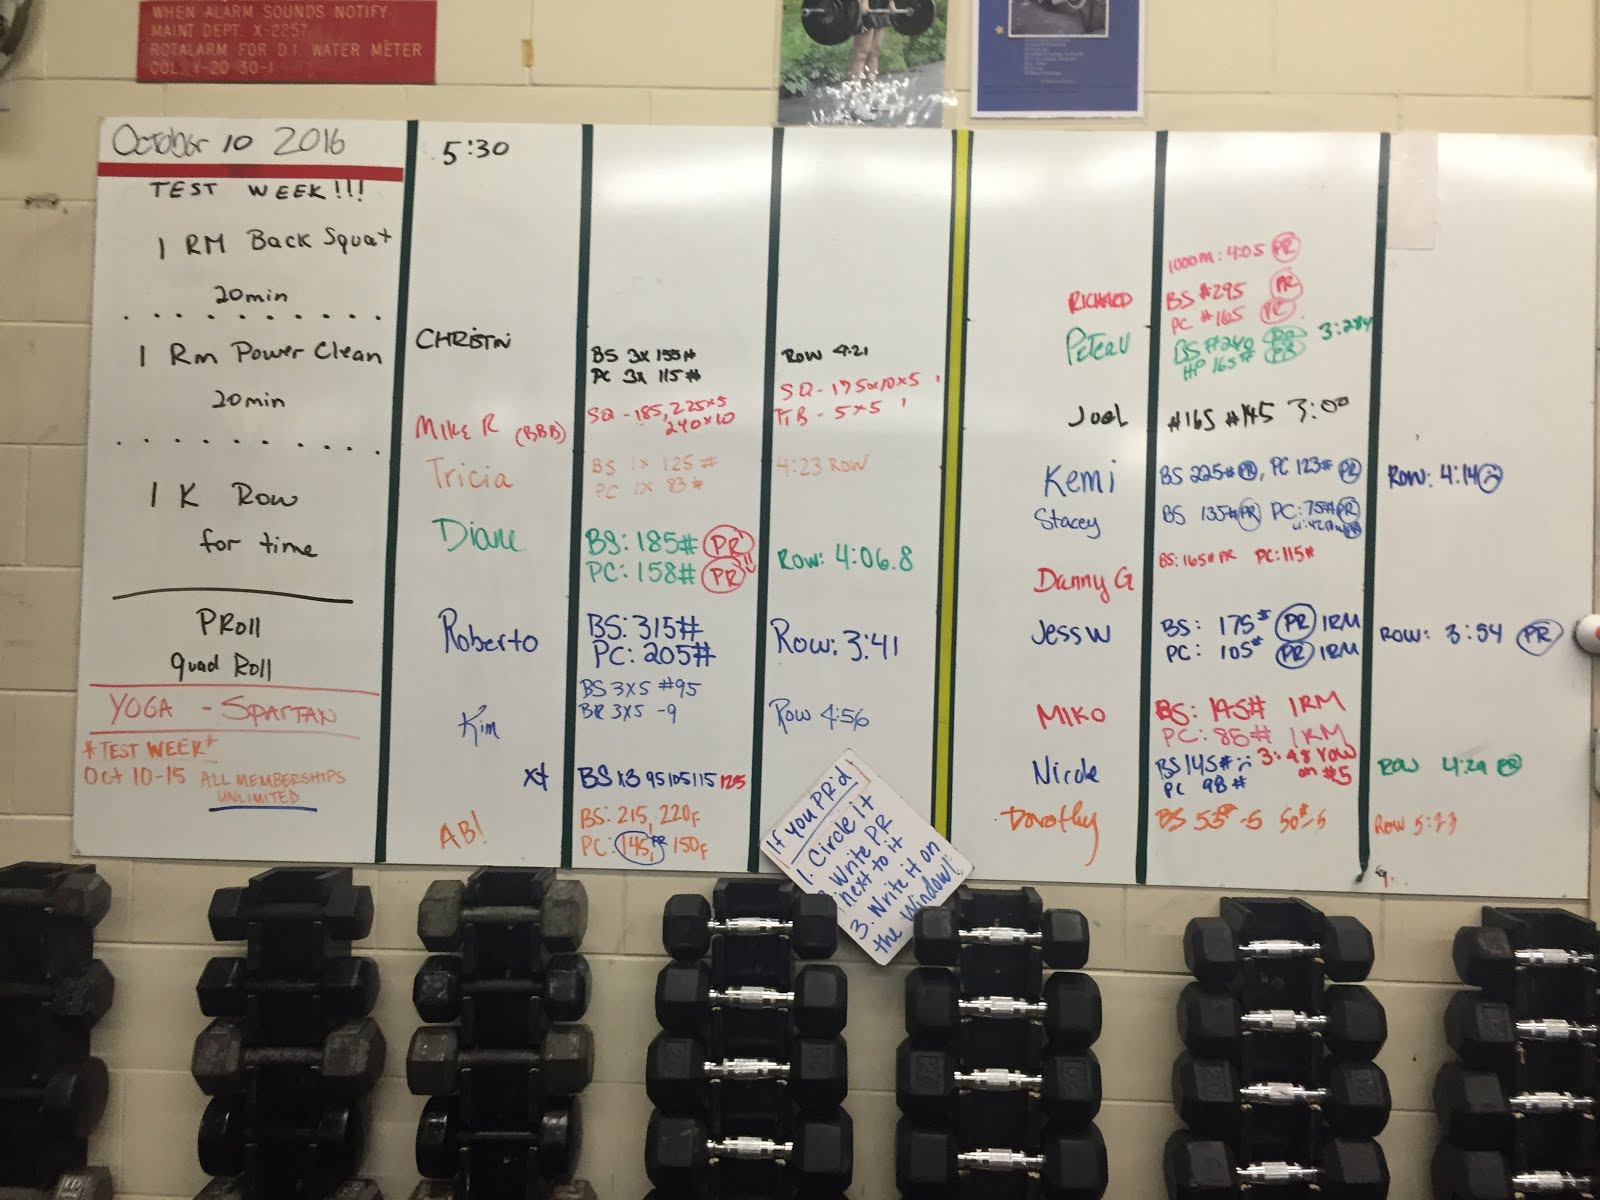 WHEN ALARM SOUNDS NOTIFY
MAINT DEPT. X-2257
ROTALARM FOR D.I. WATER METER
COL. Y-20 30-1
October 10 2016
TEST WEEK!!!
1 RM Back Squat
20min
1 Rm Power Clean
20min
1 K Row
for time
PRoll
quad Roll
YOGA - SPARTAN
*TEST WEEK*
Oct 10-15 ALL MEMBERSHIPS
UNLIMITED
5:30
CHRISTIN
BS 3x 155#
PC 3x 115#
Row 4:21
MIKE R (BBB)
SQ - 185, 225x5
240x10
SQ - 175x10x5
5x5
Tricia
BS 1x 125#
PC 1x 83#
4:23 ROW
Diane
BS: 185# PR
PC: 158# PR!!
Row: 4:06.8
Roberto
BS: 315#
PC: 205#
Row: 3:41
Kim
BS 3x5 #95
BR 3x5 -9
Row 4:56
BS x3 95 105 115 125
AB!
BS: 215, 220F
PC: 145, PR 150F
If you PR'd
1. Circle it
2 Write PR
next to it
3. Write it on
the Window!
RICHARD
1000M: 4:05 PR
BS #295 PR
PC #165 PR
PETER V
BS #240 PR
HP 165# PR
Joel
#165 #145 3:00
Kemi
BS 225# PR, PC 123# PR
Row: 4:14
Stacey
BS 135# PR PC: 75# PR
Danny G
BS: 165# PR PC: 115#
Jess W
BS: 175# PR 1RM
PC: 105# PR 1RM
Row: 3:54 PR
MIKO
BS: 145# 1RM
PC: 85# 1RM
Nicole
BS 145# 3:48 row
on #5
PC 98#
Row 4:29
Dorothy
BS 53# -5 50# -5
Row 5:23